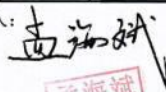 : 孟海斌
孟海斌